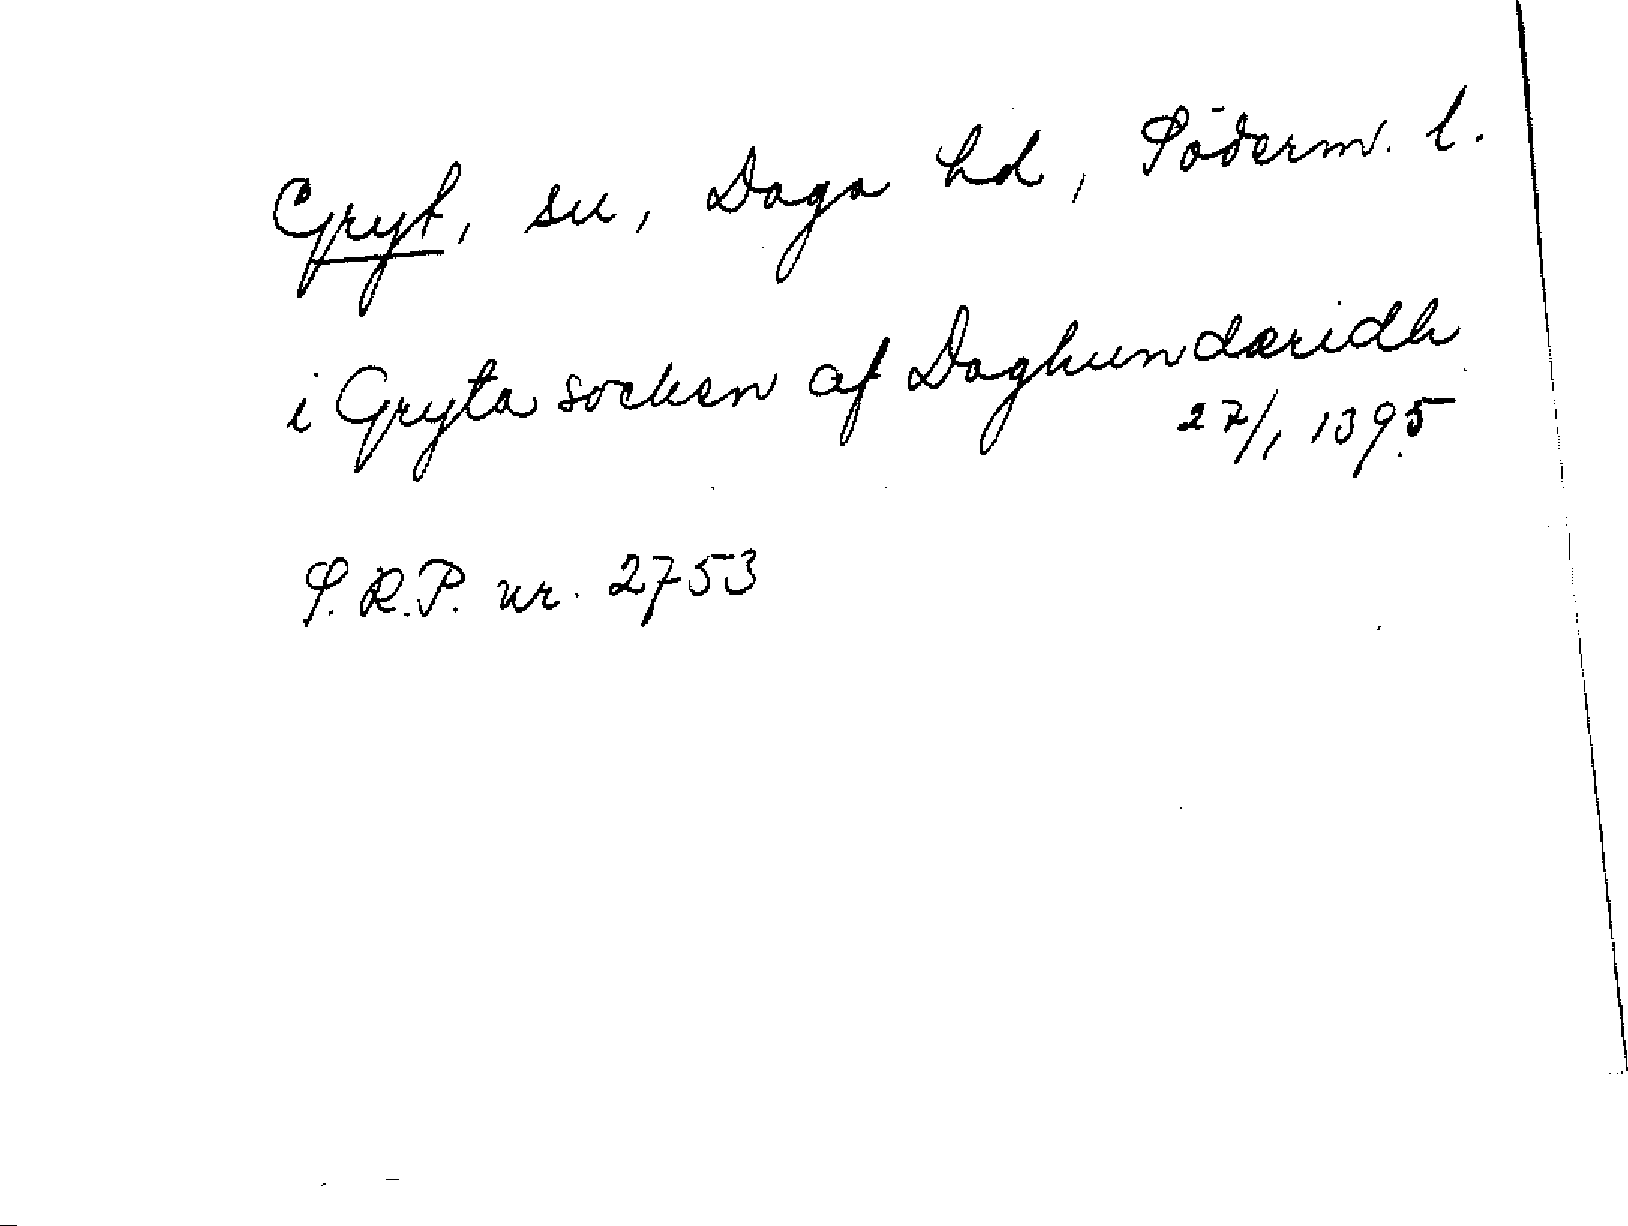 Gryt, sn, Daga hd, Söderm. l.
i Gryta socken af Daghundæridh
27/1 1395
S.R.P. nr. 2753